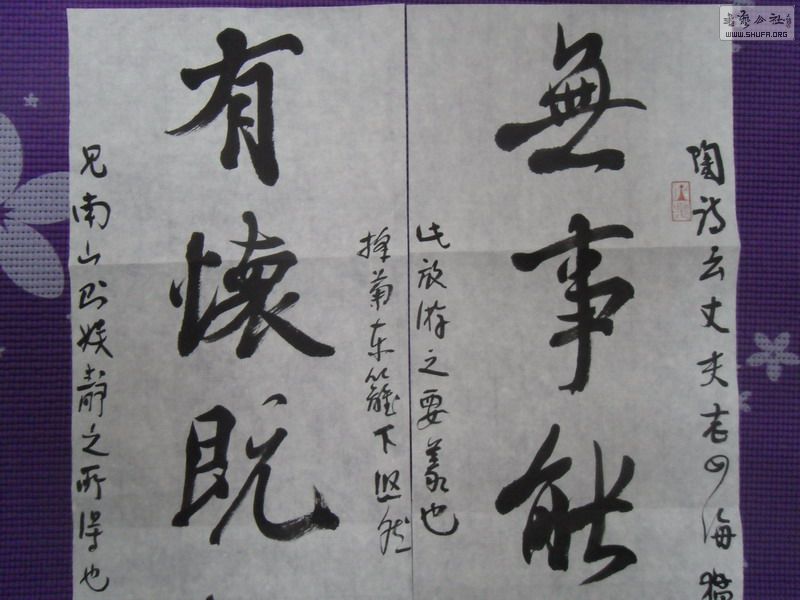 陶诗云丈夫志四海猛
無事能
此放游之要義也
採菊东籬下悠然
有懷既
见南山则娱靜之所得也
書艺公社
WWW.SHUFA.ORG